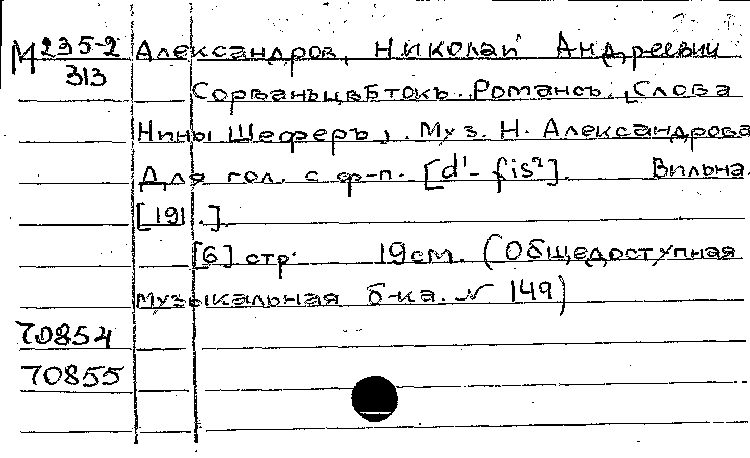 М 235-2 Александров, Николай Андреевич
313
Сорванъ цвѣтокъ. Романсъ. [Слова
Нины Шеферъ]. Муз. Н. Александрова
Для гол. с ф-п. [d¹- fis²]. Вильна.
[191 .].
[6] стр. 19 см. (Общедоступная
музыкальная б-ка. N 149)
70854
70855